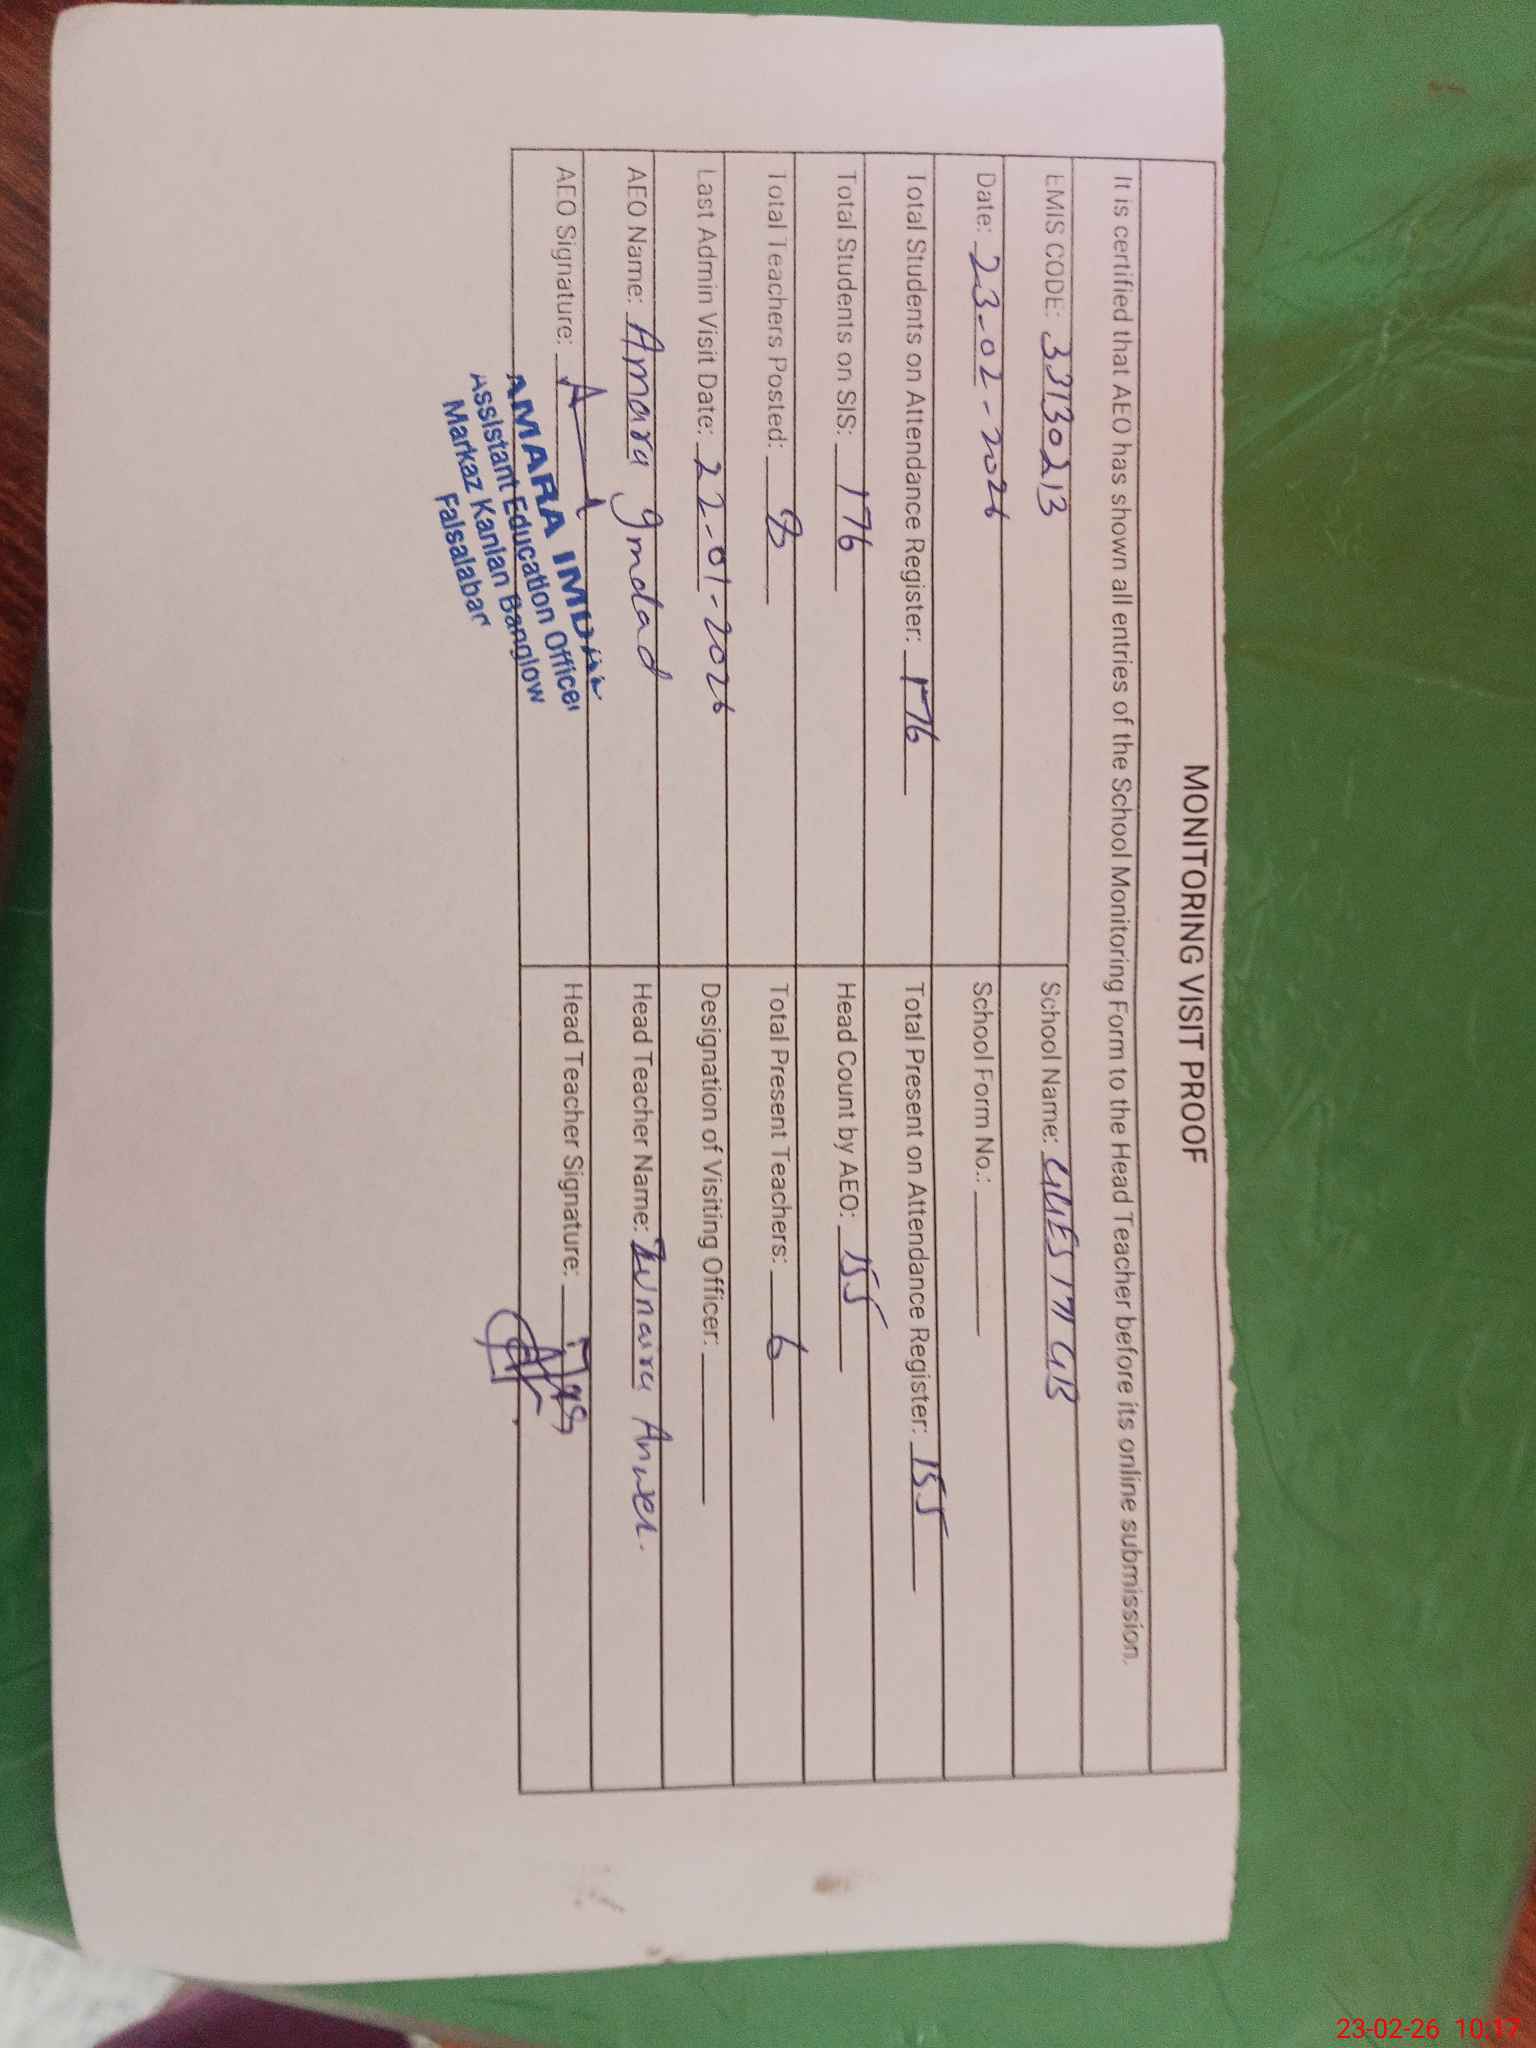 MONITORING VISIT PROOF
It is certified that AEO has shown all entries of the School Monitoring Form to the Head Teacher before its online submission.
EMIS CODE: 33130213
School Name: GGES 171 GB
Date: 23-02-2026
School Form No.:
Total Students on Attendance Register: 176
Total Present on Attendance Register: 155
Total Students on SIS: 176
Head Count by AEO: 155
Total Teachers Posted: 8
Total Present Teachers: 6
Last Admin Visit Date: 22-01-2026
Designation of Visiting Officer:
AEO Name: Amara Imdad
Head Teacher Name: Zunaira Anwer.
AEO Signature:
Head Teacher Signature:
AMARA IMDAD
Assistant Education Officer
Markaz Kanian Banglow
Faisalabad
23-02-26 10:17